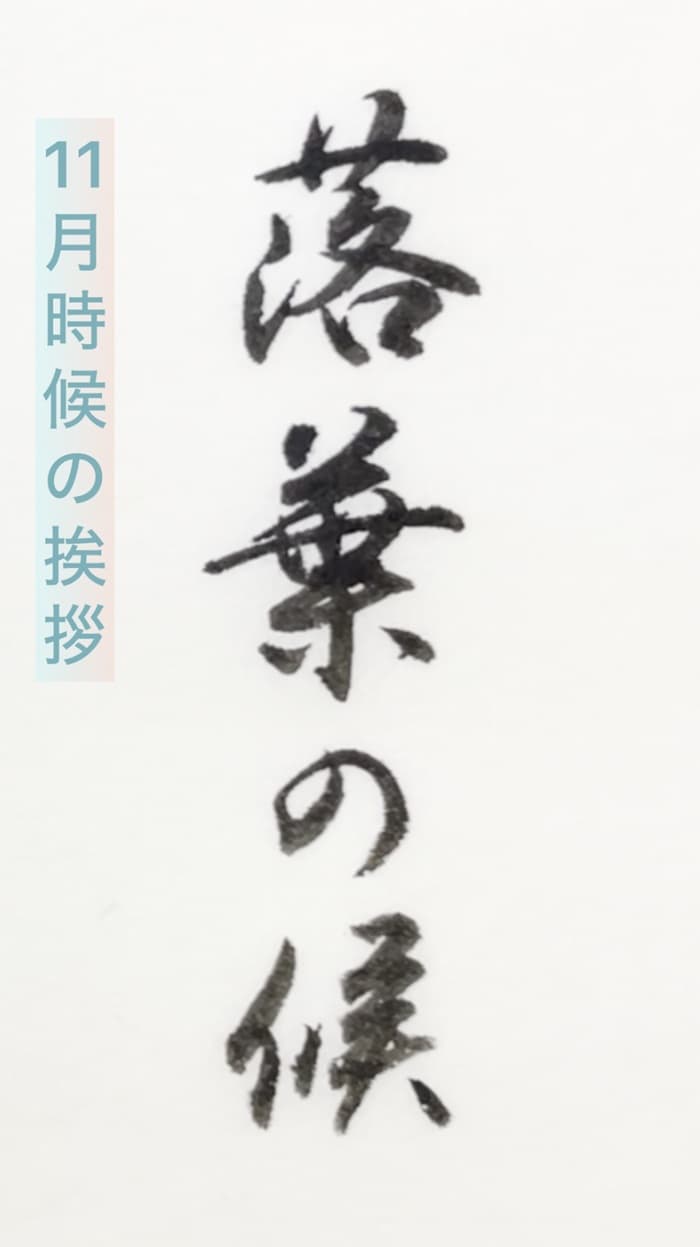 落葉の候
11月時候の挨拶